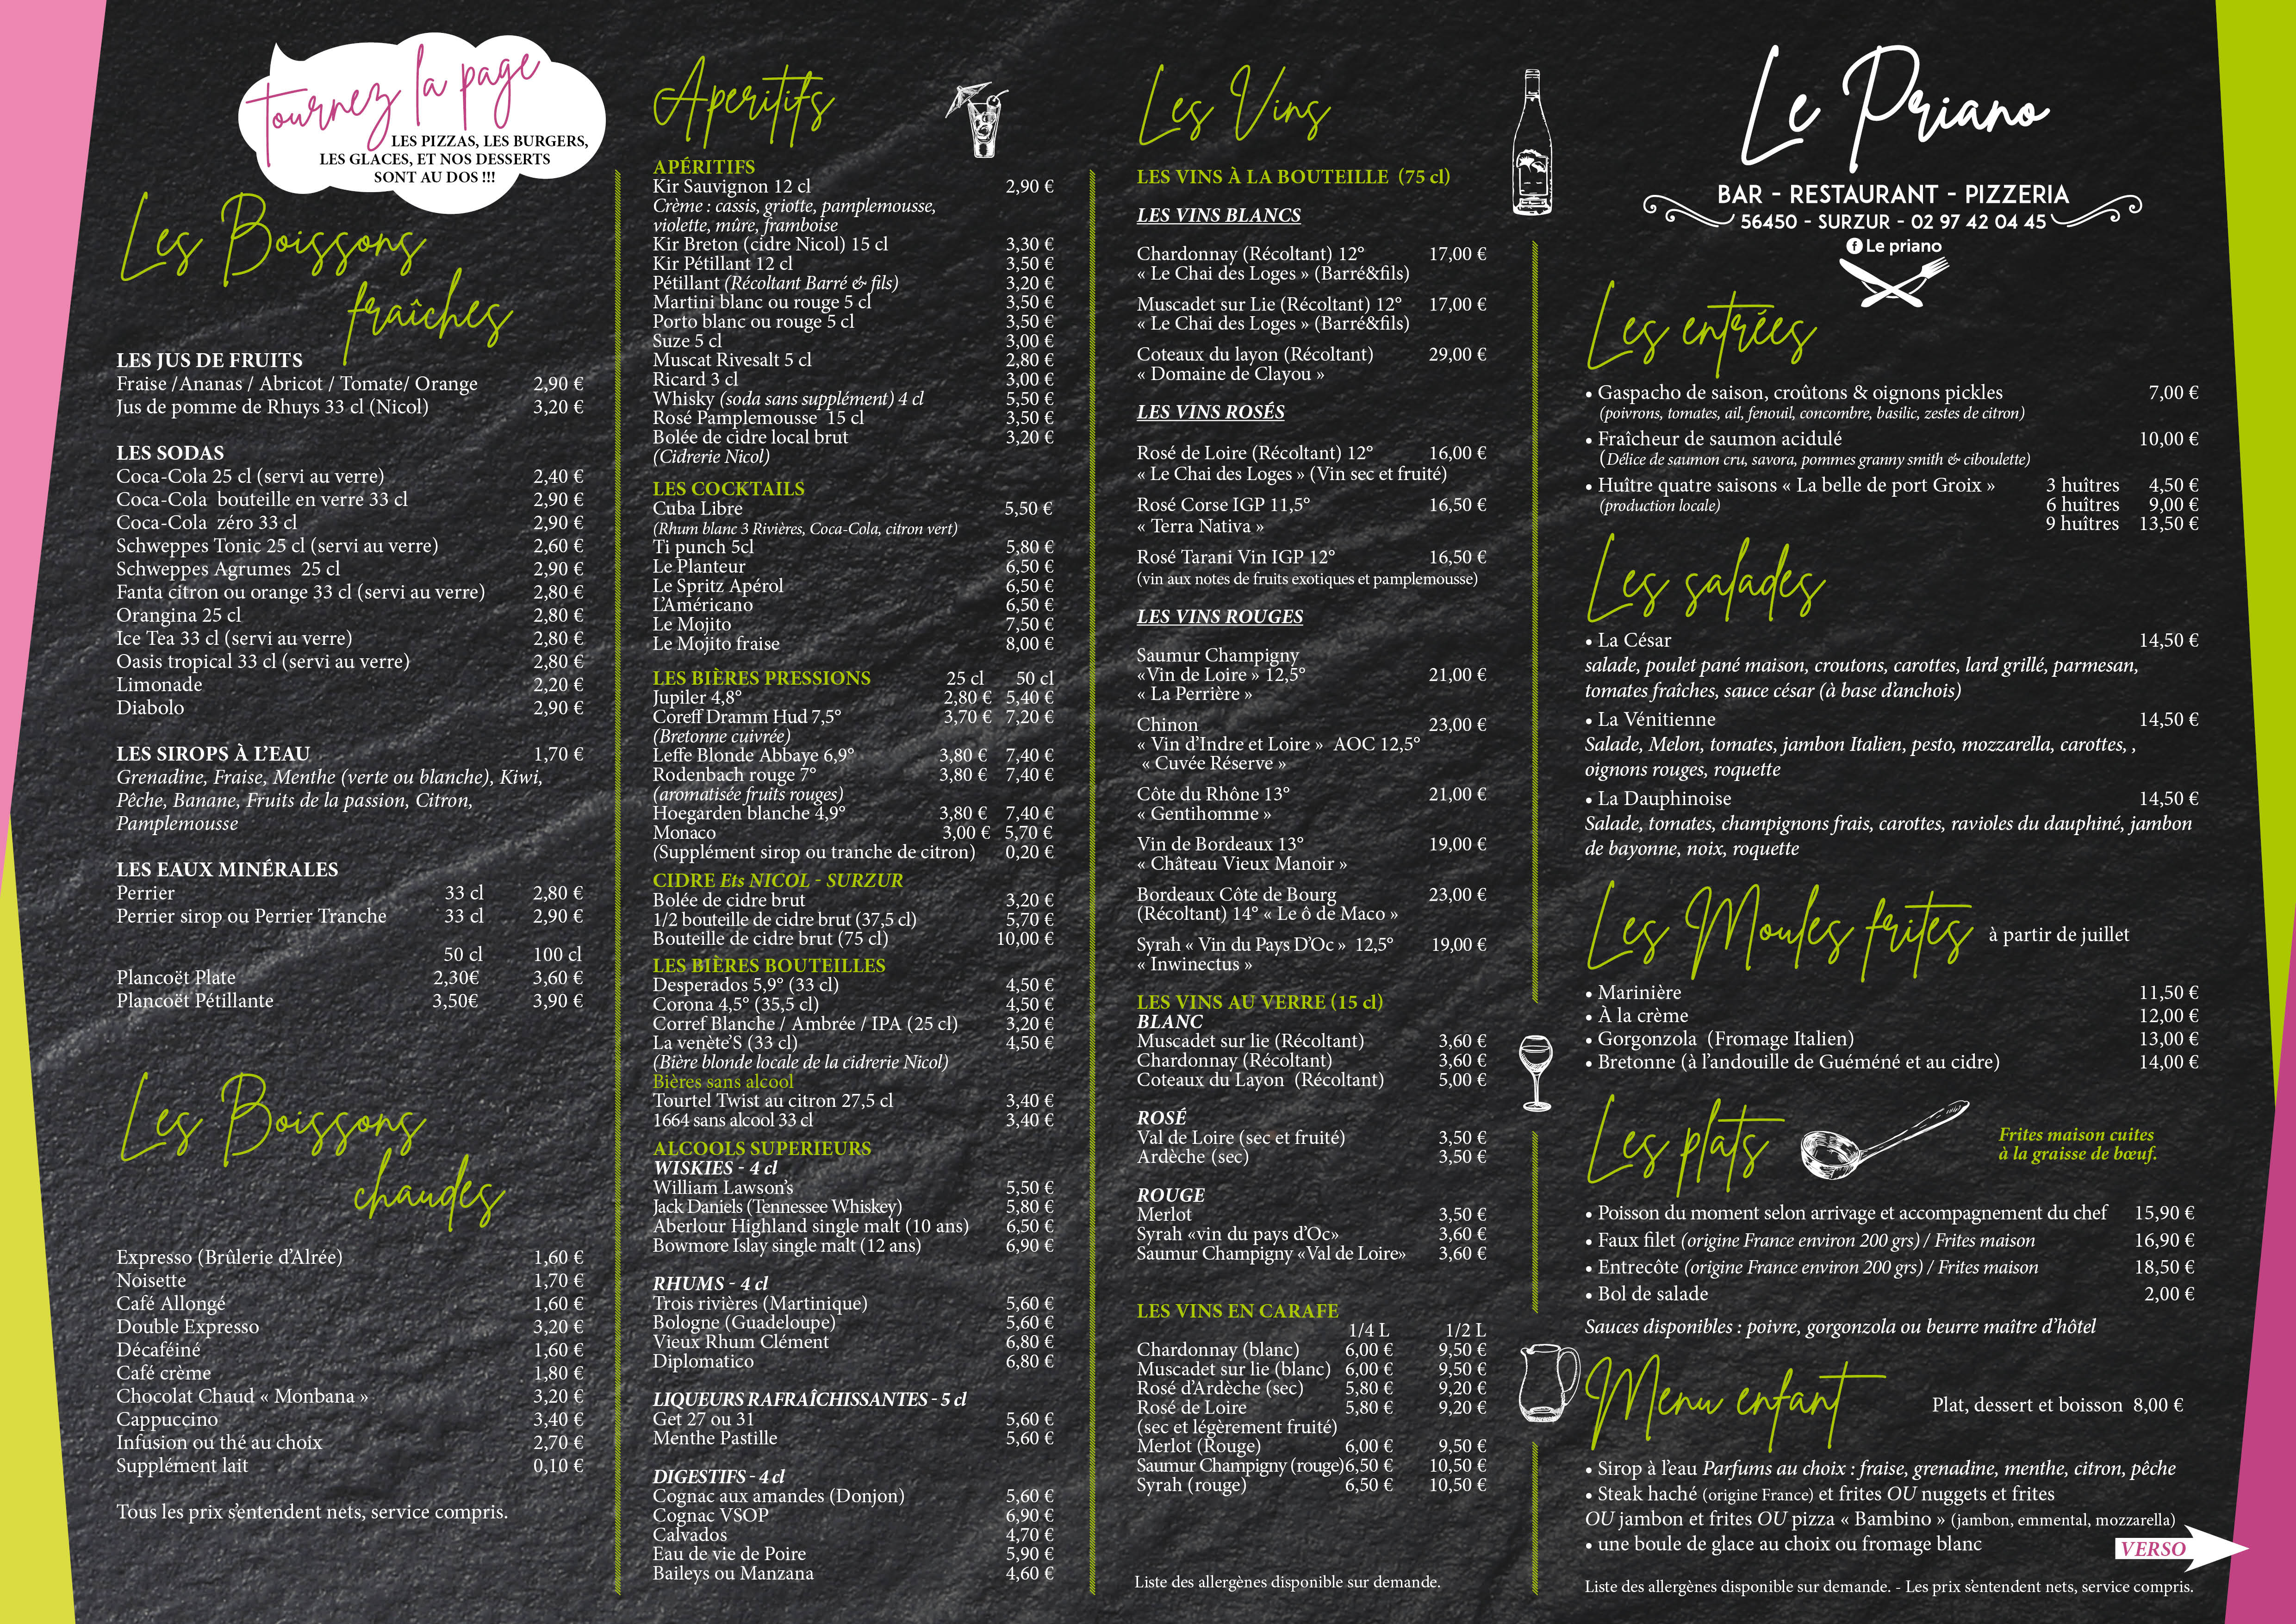 tournez la page
LES PIZZAS, LES BURGERS,
LES GLACES, ET NOS DESSERTS
SONT AU DOS !!!
Les Boissons
fraîches
LES JUS DE FRUITS
Fraise /Ananas / Abricot / Tomate/ Orange 2,90 €
Jus de pomme de Rhuys 33 cl (Nicol) 3,20 €
LES SODAS
Coca-Cola 25 cl (servi au verre) 2,40 €
Coca-Cola bouteille en verre 33 cl 2,90 €
Coca-Cola zéro 33 cl 2,90 €
Schweppes Tonic 25 cl (servi au verre) 2,60 €
Schweppes Agrumes 25 cl 2,90 €
Fanta citron ou orange 33 cl (servi au verre) 2,80 €
Orangina 25 cl 2,80 €
Ice Tea 33 cl (servi au verre) 2,80 €
Oasis tropical 33 cl (servi au verre) 2,80 €
Limonade 2,20 €
Diabolo 2,90 €
LES SIROPS À L'EAU 1,70 €
Grenadine, Fraise, Menthe (verte ou blanche), Kiwi,
Pêche, Banane, Fruits de la passion, Citron,
Pamplemousse
LES EAUX MINÉRALES
Perrier 33 cl 2,80 €
Perrier sirop ou Perrier Tranche 33 cl 2,90 €
50 cl 100 cl
Plancoët Plate 2,30€ 3,60 €
Plancoët Pétillante 3,50€ 3,90 €
Les Boissons
chaudes
Expresso (Brûlerie d'Alrée) 1,60 €
Noisette 1,70 €
Café Allongé 1,60 €
Double Expresso 3,20 €
Décaféiné 1,60 €
Café crème 1,80 €
Chocolat Chaud « Monbana » 3,20 €
Cappuccino 3,40 €
Infusion ou thé au choix 2,70 €
Supplément lait 0,10 €
Tous les prix s'entendent nets, service compris.
Aperitifs
APÉRITIFS
Kir Sauvignon 12 cl 2,90 €
Crème : cassis, griotte, pamplemousse,
violette, mûre, framboise
Kir Breton (cidre Nicol) 15 cl 3,30 €
Kir Pétillant 12 cl 3,50 €
Pétillant (Récoltant Barré & fils) 3,20 €
Martini blanc ou rouge 5 cl 3,50 €
Porto blanc ou rouge 5 cl 3,50 €
Suze 5 cl 3,00 €
Muscat Rivesalt 5 cl 2,80 €
Ricard 3 cl 3,00 €
Whisky (soda sans supplément) 4 cl 5,50 €
Rosé Pamplemousse 15 cl 3,50 €
Bolée de cidre local brut 3,20 €
(Cidrerie Nicol)
LES COCKTAILS
Cuba Libre 5,50 €
(Rhum blanc 3 Rivières, Coca-Cola, citron vert)
Ti punch 5cl 5,80 €
Le Planteur 6,50 €
Le Spritz Apérol 6,50 €
L'Américano 6,50 €
Le Mojito 7,50 €
Le Mojito fraise 8,00 €
LES BIÈRES PRESSIONS 25 cl 50 cl
Jupiler 4,8° 2,80 € 5,40 €
Coreff Dramm Hud 7,5° 3,70 € 7,20 €
(Bretonne cuivrée)
Leffe Blonde Abbaye 6,9° 3,80 € 7,40 €
Rodenbach rouge 7° 3,80 € 7,40 €
(aromatisée fruits rouges)
Hoegarden blanche 4,9° 3,80 € 7,40 €
Monaco 3,00 € 5,70 €
(Supplément sirop ou tranche de citron) 0,20 €
CIDRE Ets NICOL - SURZUR
Bolée de cidre brut 3,20 €
1/2 bouteille de cidre brut (37,5 cl) 5,70 €
Bouteille de cidre brut (75 cl) 10,00 €
LES BIÈRES BOUTEILLES
Desperados 5,9° (33 cl) 4,50 €
Corona 4,5° (35,5 cl) 4,50 €
Corref Blanche / Ambrée / IPA (25 cl) 3,20 €
La venète'S (33 cl) 4,50 €
(Bière blonde locale de la cidrerie Nicol)
Bières sans alcool
Tourtel Twist au citron 27,5 cl 3,40 €
1664 sans alcool 33 cl 3,40 €
ALCOOLS SUPERIEURS
WISKIES - 4 cl
William Lawson's 5,50 €
Jack Daniels (Tennessee Whiskey) 5,80 €
Aberlour Highland single malt (10 ans) 6,50 €
Bowmore Islay single malt (12 ans) 6,90 €
RHUMS - 4 cl
Trois rivières (Martinique) 5,60 €
Bologne (Guadeloupe) 5,60 €
Vieux Rhum Clément 6,80 €
Diplomatico 6,80 €
LIQUEURS RAFRAÎCHISSANTES - 5 cl
Get 27 ou 31 5,60 €
Menthe Pastille 5,60 €
DIGESTIFS - 4 cl
Cognac aux amandes (Donjon) 5,60 €
Cognac VSOP 6,90 €
Calvados 4,70 €
Eau de vie de Poire 5,90 €
Baileys ou Manzana 4,60 €
Les Vins
LES VINS À LA BOUTEILLE (75 cl)
LES VINS BLANCS
Chardonnay (Récoltant) 12° 17,00 €
« Le Chai des Loges » (Barré&fils)
Muscadet sur Lie (Récoltant) 12° 17,00 €
« Le Chai des Loges » (Barré&fils)
Coteaux du layon (Récoltant) 29,00 €
« Domaine de Clayou »
LES VINS ROSÉS
Rosé de Loire (Récoltant) 12° 16,00 €
« Le Chai des Loges » (Vin sec et fruité)
Rosé Corse IGP 11,5° 16,50 €
« Terra Nativa »
Rosé Tarani Vin IGP 12° 16,50 €
(vin aux notes de fruits exotiques et pamplemousse)
LES VINS ROUGES
Saumur Champigny
«Vin de Loire » 12,5° 21,00 €
« La Perrière »
Chinon 23,00 €
« Vin d'Indre et Loire » AOC 12,5°
« Cuvée Réserve »
Côte du Rhône 13° 21,00 €
« Gentihomme »
Vin de Bordeaux 13° 19,00 €
« Château Vieux Manoir »
Bordeaux Côte de Bourg 23,00 €
(Récoltant) 14° « Le ô de Maco »
Syrah « Vin du Pays D'Oc » 12,5° 19,00 €
« Inwinectus »
LES VINS AU VERRE (15 cl)
BLANC
Muscadet sur lie (Récoltant) 3,60 €
Chardonnay (Récoltant) 3,60 €
Coteaux du Layon (Récoltant) 5,00 €
ROSÉ
Val de Loire (sec et fruité) 3,50 €
Ardèche (sec) 3,50 €
ROUGE
Merlot 3,50 €
Syrah «vin du pays d'Oc» 3,60 €
Saumur Champigny «Val de Loire» 3,60 €
LES VINS EN CARAFE
1/4 L 1/2 L
Chardonnay (blanc) 6,00 € 9,50 €
Muscadet sur lie (blanc) 6,00 € 9,50 €
Rosé d'Ardèche (sec) 5,80 € 9,20 €
Rosé de Loire 5,80 € 9,20 €
(sec et légèrement fruité)
Merlot (Rouge) 6,00 € 9,50 €
Saumur Champigny (rouge)6,50 € 10,50 €
Syrah (rouge) 6,50 € 10,50 €
Liste des allergènes disponible sur demande.
Le Priano
BAR - RESTAURANT - PIZZERIA
56450 - SURZUR - 02 97 42 04 45
f Le priano
Les entrées
• Gaspacho de saison, croûtons & oignons pickles 7,00 €
(poivrons, tomates, ail, fenouil, concombre, basilic, zestes de citron)
• Fraîcheur de saumon acidulé 10,00 €
(Délice de saumon cru, savora, pommes granny smith & ciboulette)
• Huître quatre saisons « La belle de port Groix » 3 huîtres 4,50 €
(production locale) 6 huîtres 9,00 €
9 huîtres 13,50 €
Les salades
• La César 14,50 €
salade, poulet pané maison, croutons, carottes, lard grillé, parmesan,
tomates fraîches, sauce césar (à base d'anchois)
• La Vénitienne 14,50 €
Salade, Melon, tomates, jambon Italien, pesto, mozzarella, carottes, ,
oignons rouges, roquette
• La Dauphinoise 14,50 €
Salade, tomates, champignons frais, carottes, ravioles du dauphiné, jambon
de bayonne, noix, roquette
Les Moules frites à partir de juillet
• Marinière 11,50 €
• À la crème 12,00 €
• Gorgonzola (Fromage Italien) 13,00 €
• Bretonne (à l'andouille de Guéméné et au cidre) 14,00 €
Les plats
Frites maison cuites
à la graisse de bœuf.
• Poisson du moment selon arrivage et accompagnement du chef 15,90 €
• Faux filet (origine France environ 200 grs) / Frites maison 16,90 €
• Entrecôte (origine France environ 200 grs) / Frites maison 18,50 €
• Bol de salade 2,00 €
Sauces disponibles : poivre, gorgonzola ou beurre maître d'hôtel
Menu enfant Plat, dessert et boisson 8,00 €
• Sirop à l'eau Parfums au choix : fraise, grenadine, menthe, citron, pêche
• Steak haché (origine France) et frites OU nuggets et frites
OU jambon et frites OU pizza « Bambino » (jambon, emmental, mozzarella)
• une boule de glace au choix ou fromage blanc
VERSO
Liste des allergènes disponible sur demande. - Les prix s'entendent nets, service compris.